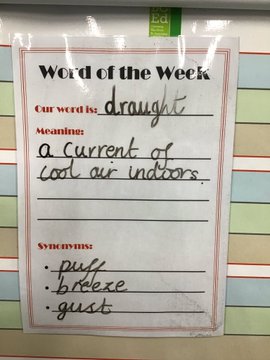 Ed
Word of the Week
Our word is: draught
Meaning:
a current of
cool air indoors.
Synonyms:
• puff
• breeze
• gust